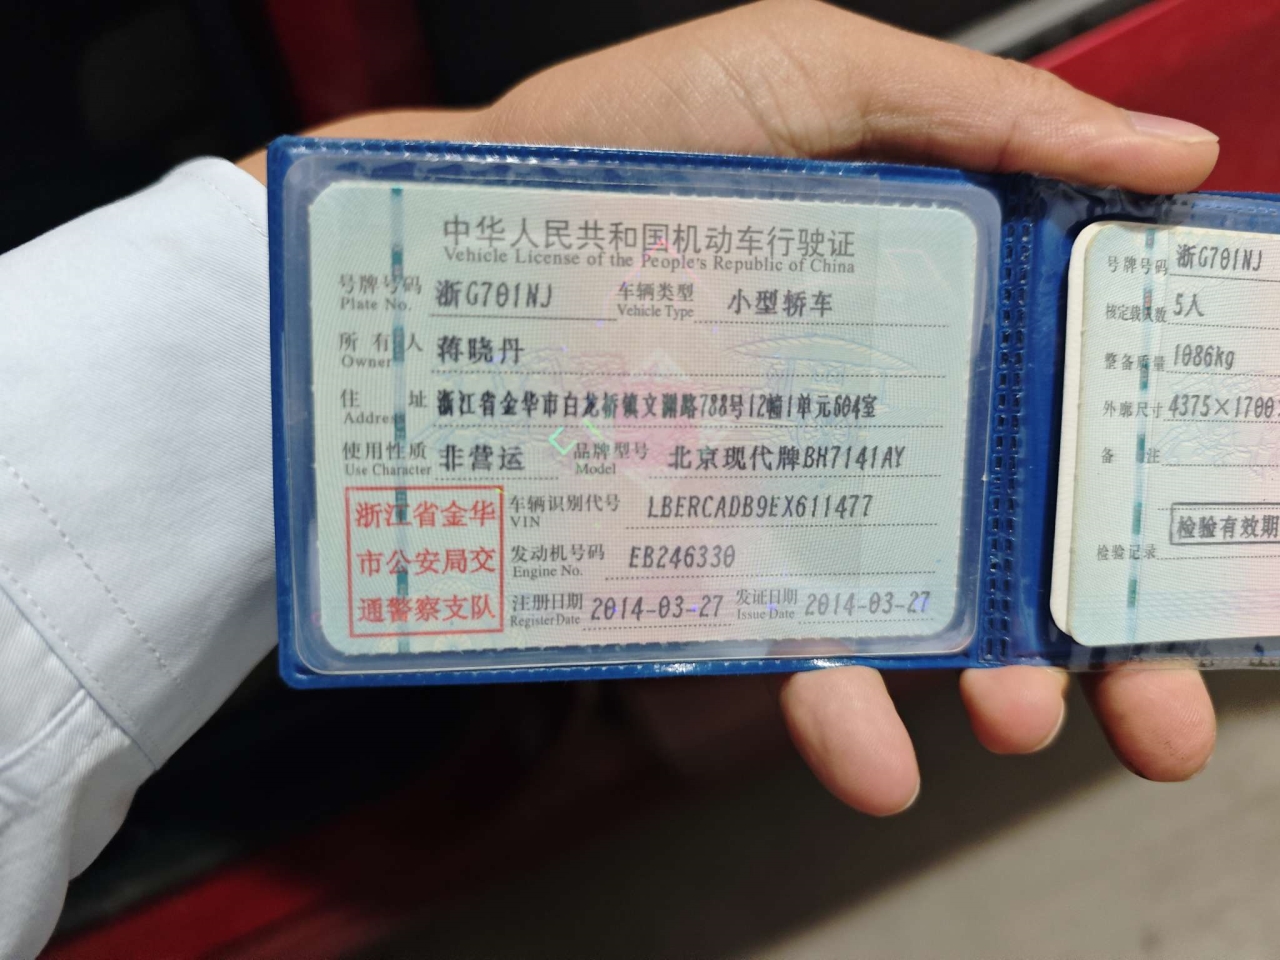 中华人民共和国机动车行驶证
Vehicle License of the People's Republic of China
号牌号码 浙G701NJ 车辆类型 小型轿车
Plate No. Vehicle Type
所有人 蒋晓丹
Owner
住址 浙江省金华市白龙桥镇文渊路788号12幢1单元604室
Address
使用性质 非营运 品牌型号 北京现代牌BH7141AY
Use Character Model
浙江省金华
市公安局交
通警察支队
车辆识别代号 LBERCADB9EX611477
VIN
发动机号码 EB246330
Engine No.
注册日期 2014-03-27 发证日期 2014-03-27
Register Date Issue Date
号牌号码 浙G701NJ
核定载人数 5人
整备质量 1086kg
外廓尺寸 4375×1700
备注
检验有效期
检验记录